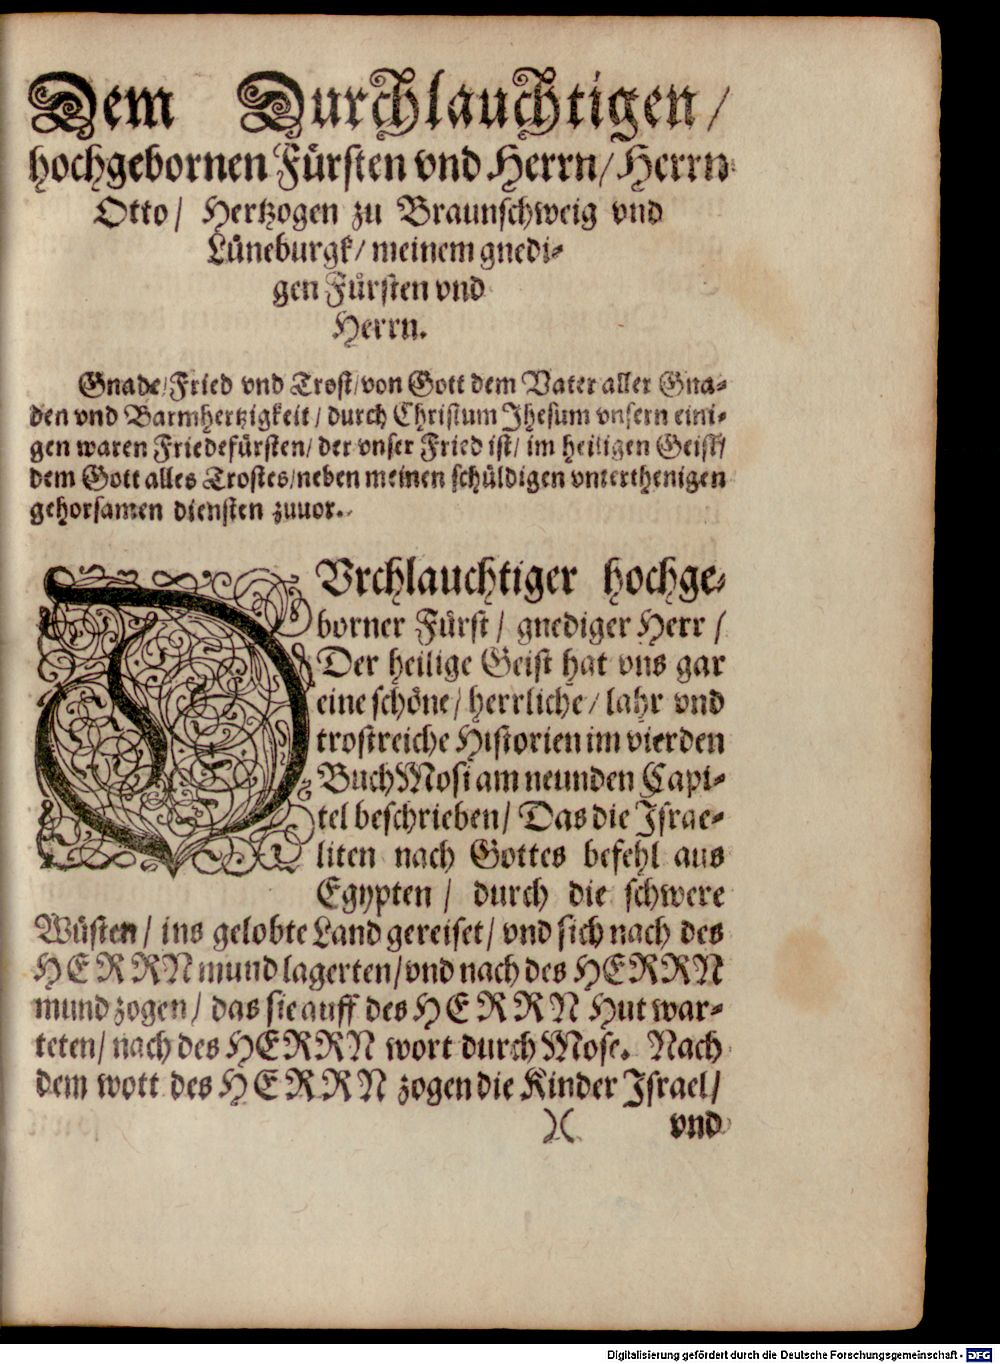 Dem Durchlauchtigen/
hochgebornen Fürsten vnd Herrn/ Herrn
Otto/ Hertzogen zu Braunschweig vnd
Lüneburgk/ meinem gnedi-
gen Fürsten vnd
Herrn.
Gnade/ Fried vnd Trost/ von Gott dem Vater aller Gna-
den vnd Barmhertzigkeit/ durch Christum Jhesum vnsern eini-
gen waren Friedefürsten/ der vnser Fried ist/ im heiligen Geist/
dem Gott alles Trostes/ neben meinen schüldigen vnterthenigen
gehorsamen diensten zuuor.
DVrchlauchtiger hochge-
borner Fürst/ gnediger Herr/
Der heilige Geist hat vns gar
eine schöne/ herrliche/ lahr vnd
trostreiche Historien im vierden
Buch Mosi am neunden Capi-
tel beschrieben/ Das die Israe-
liten nach Gottes befehl aus
Egypten/ durch die schwere
Wüsten/ ins gelobte Land gereiset/ vnd sich nach des
HERRN mund lagerten/ vnd nach des HERRN
mund zogen/ das sie auff des HERRN Hut war-
teten/ nach des HERRN wort durch Mose. Nach
dem wott des HERRN zogen die Kinder Israel/
)( vnd
Digitalisierung gefördert durch die Deutsche Forschungsgemeinschaft - DFG